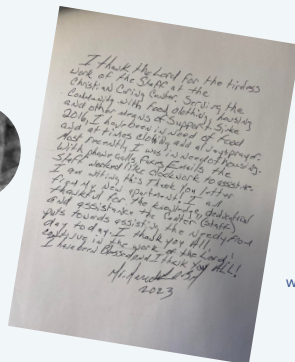 I thank the Lord for the tireless
work of the Staff at the
Christian Caring Center. Serving the
Community with food, clothing, housing
and other means of Support. Since
2016, I have been in need of food
and at times clothing and always prayer.
Most recently, I was in need of housing.
With phone calls, Faxes, Emails the
Staff worked like clockwork to assist me.
I am writing this Thank You letter
from my new apartment. I am
thankful for the loving, dedicated
and assistance the Center (Staff)
puts towards assisting the needy from
day to day. I thank you All.
Continue in the work of the Lord!
I have been blessed and I thank you ALL!
Mr.
2023
w